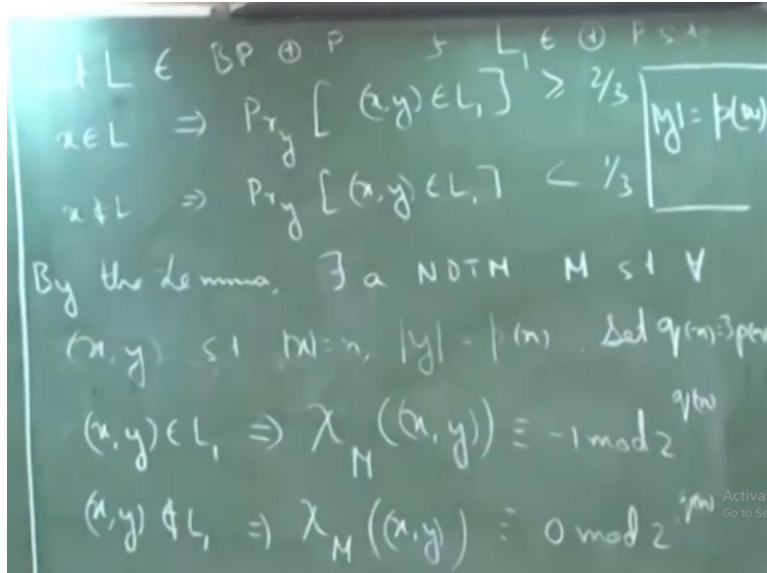 Let L ∈ BP ⊕ P ∃ L₁ ∈ ⊕ P s t
x ∈ L ⇒ Pr_y [ (x,y) ∈ L₁ ] ≥ 2/3 |y| = p(n)
x ∉ L ⇒ Pr_y [ (x,y) ∈ L₁ ] < 1/3
By the Lemma, ∃ a NDTM M s t ∀
(x, y) s t |x| = n, |y| = p(n). Set q(n) = 3p(n)
(x,y) ∈ L₁ ⇒ χ_M ((x,y)) ≡ -1 mod 2^q(n)
(x,y) ∉ L₁ ⇒ χ_M ((x,y)) ≡ 0 mod 2^q(n)
Activa
Go to Se